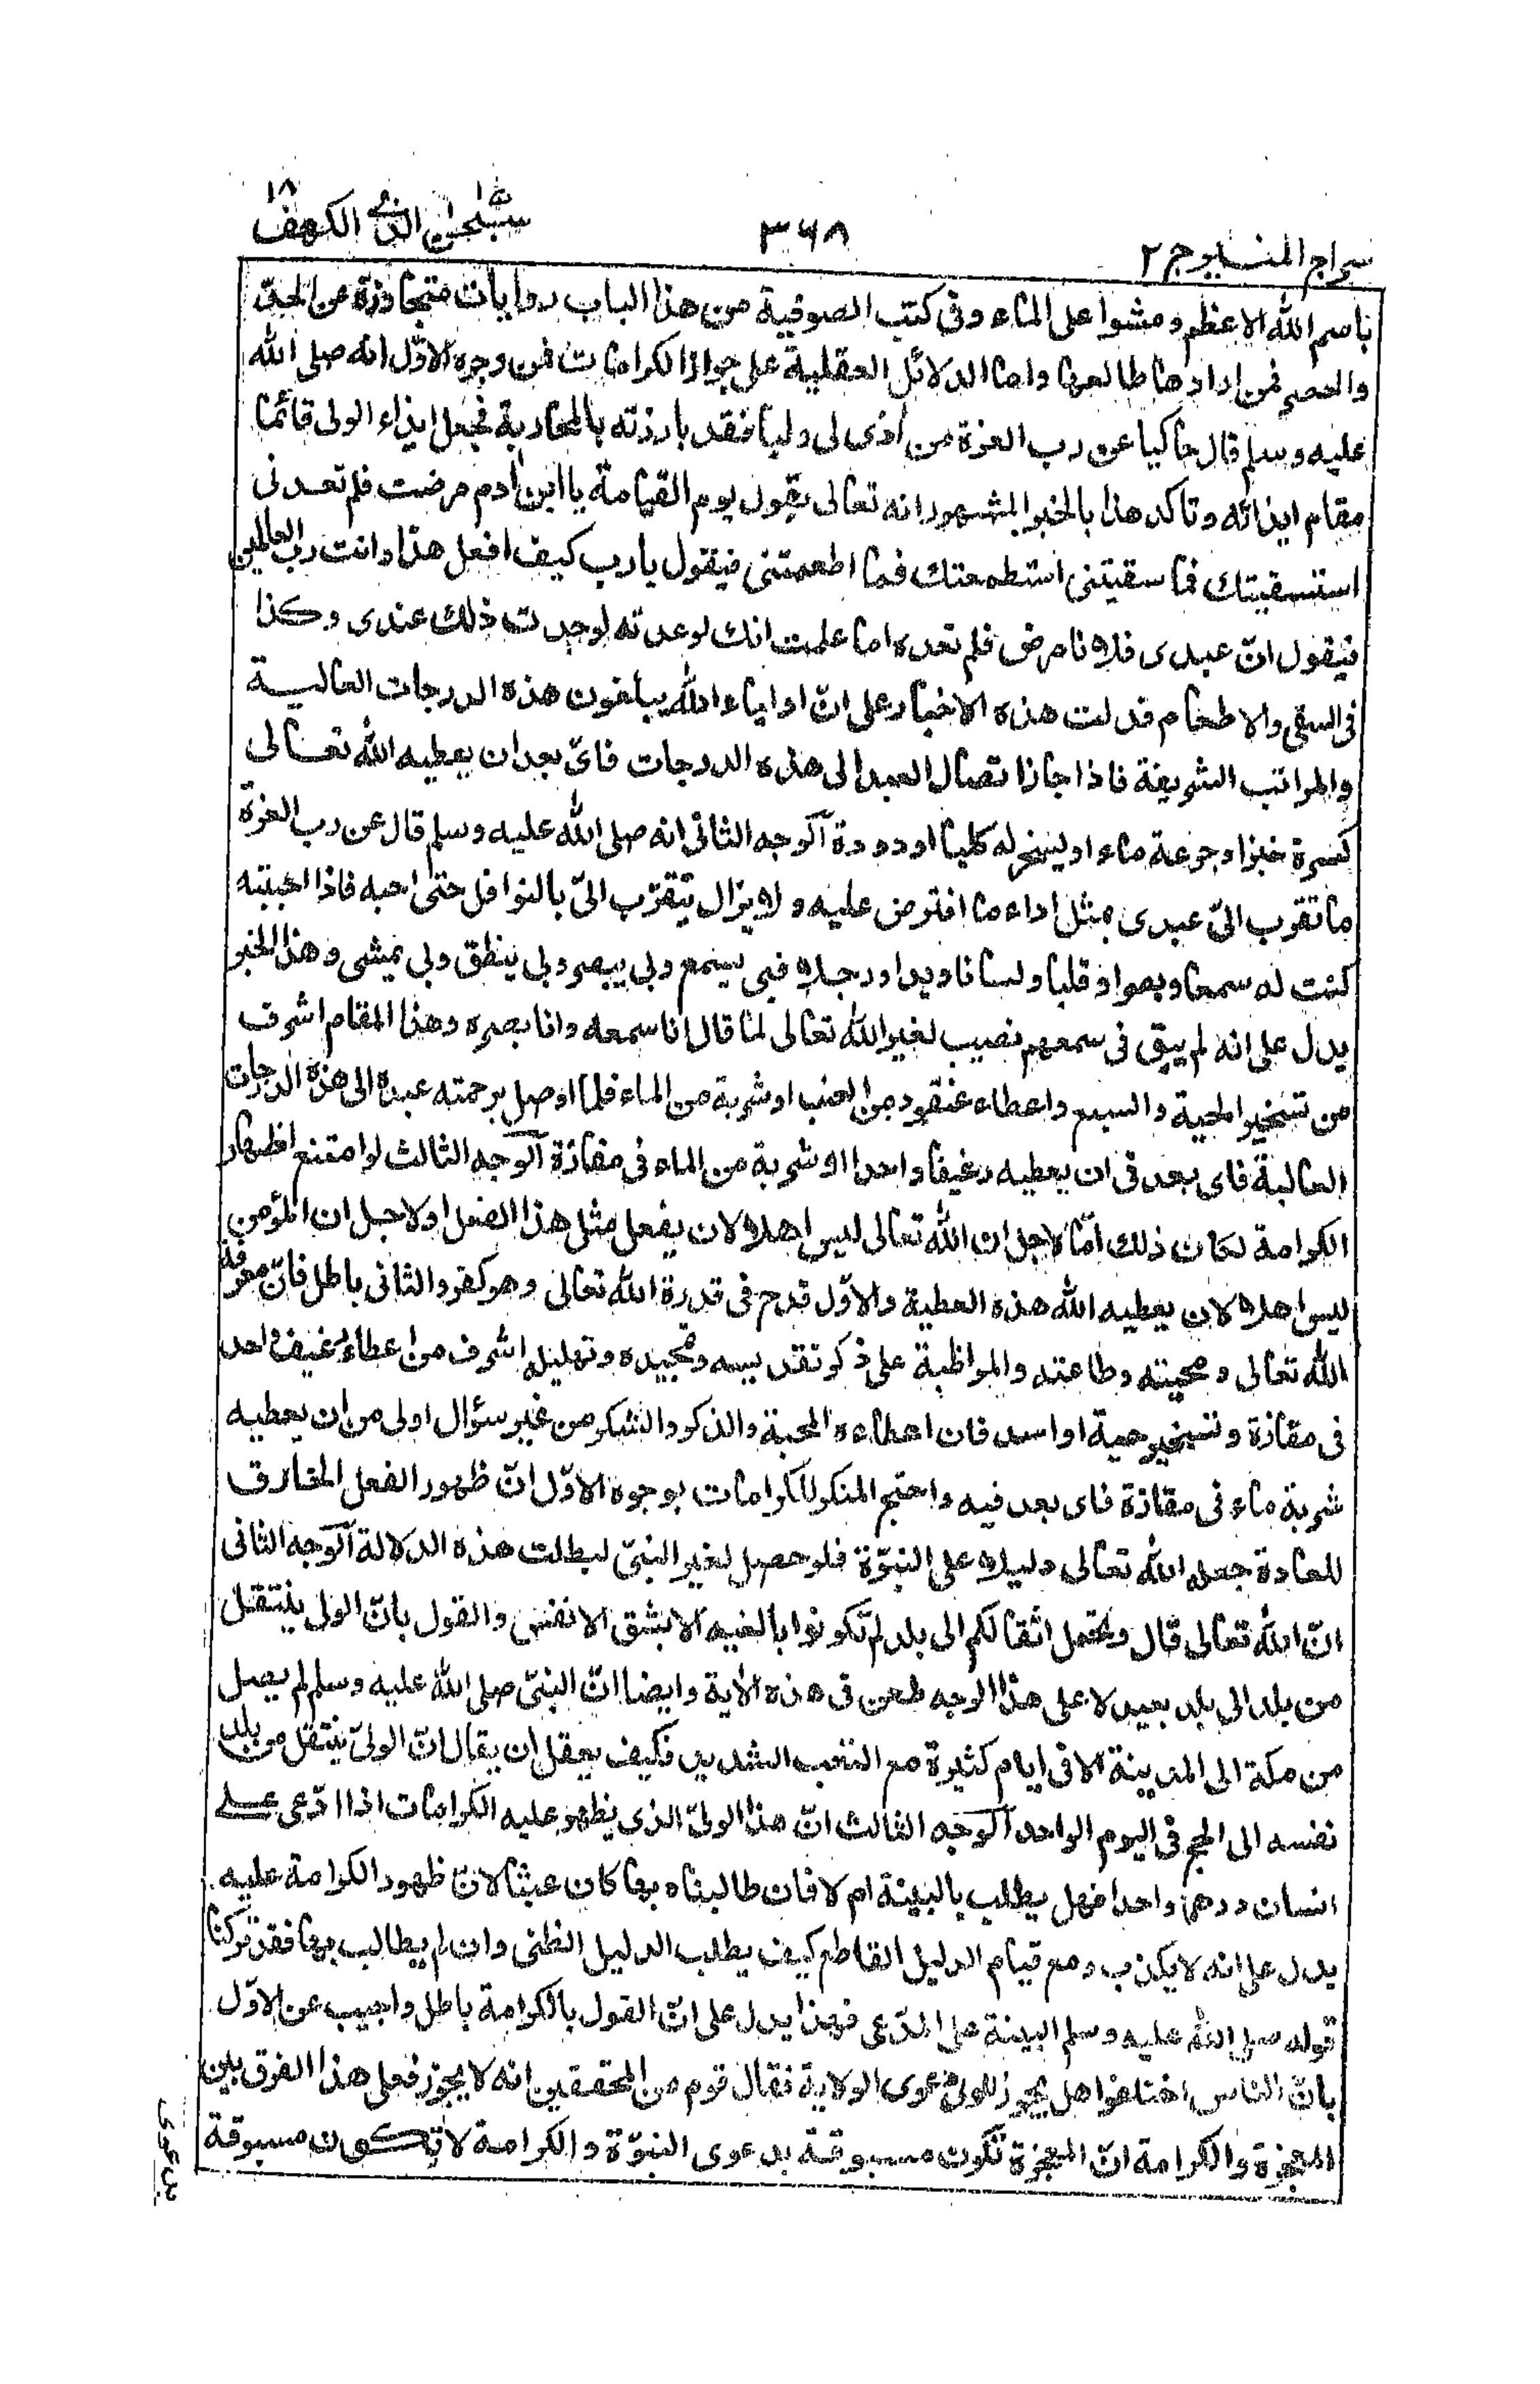 سراج المنير ج ٢
٣٦٨
سبحن الذى ١٥ الكهف ١٨
باسم الله الاعظم ومشوا على الماء وفى كتب الصوفية من هذا الباب روايات متجاوزة عن الحدّ
والحصر فمن ارادها طالعها واما الدلائل العقلية على جواز الكرامات فمن وجوه الاوّل انه صلى الله
عليه وسلم قال حاكيا عن رب العزة من أذى لى وليا فقد بارزته بالمحاربة فجعل ايذاء الولى قائما
مقام ايذائه وتاكد هذا بالخبر المشهور انه تعالى يقول يوم القيامة يا ابن أدم مرضت فلم تعدنى
استسقيتك فما سقيتنى استطعمتك فما اطعمتنى فيقول يا رب كيف افعل هذا وانت رب العالمين
فيقول انّ عبدى فلانا مرض فلم تعده اما علمت انك لو عدته لوجدت ذلك عندى وكذا
فى السقى والاطعام فدلت هذه الاخبار على انّ اولياء الله يبلغون هذه الدرجات العالية
والمراتب الشريفة فاذا جاز اتصال العبد الى هذه الدرجات فاىّ بعد ان يعطيه الله تعالى
كسرة خبز او جرعة ماء او يسخر له كلبا او دودة آلوجه الثانى انه صلى الله عليه وسلم قال عن رب العزة
ما تقرب الىّ عبدى بمثل اداء ما افترض عليه ولا يزال يتقرّب الىّ بالنوافل حتى احبه فاذا احببته
كنت له سمعا وبصرا وقلبا ولسانا ويدا ورجلا فبى يسمع وبى يبصر وبى ينطق وبى يمشى وهذا الخبر
يدل على انه لم يبق فى سمعهم نصيب لغير الله تعالى لما قال انا سمعه وانا بصره وهذا المقام اشرف
من تسخير الحية والسبع واعطاء عنقود من العنب او شربة من الماء فلما اوصل برحمته عبده الى هذه الدرجات
العالية فاى بعد فى ان يعطيه رغيفا واحدا او شربة من الماء فى مفازة آلوجه الثالث لو امتنع اظهار
الكرامة لكان ذلك امّا لاجل ان الله تعالى ليس اهلا لان يفعل مثل هذا الفعل او لاجل ان المؤمن
ليس اهلا لان يعطيه الله هذه العطية والاوّل قدح فى قدرة الله تعالى وهو كفر والثانى باطل فانّ معرفة
الله تعالى ومحبته وطاعته والمواظبة على ذكر تقديسه وتمجيده وتهليله اشرف من اعطاء رغيف واحد
فى مفازة وتسخير حية او اسد فان اعطاءه المحبة والذكر والشكر من غير سؤال اولى من ان يعطيه
شربة ماء فى مفازة فاى بعد فيه واحتج المنكر للكرامات بوجوه الاوّل انّ ظهور الفعل الخارق
للعادة جعله الله تعالى دليلا على النبوّة فلو حصل لغير النبىّ لبطلت هذه الدلالة آلوجه الثانى
انّ الله تعالى قال وتحمل اثقالكم الى بلد لم تكونوا بالغيه الا بشق الانفس والقول بانّ الولى ينتقل
من بلد الى بلد بعيد لا على هذا الوجه طعن فى هذه الأية وايضا انّ النبىّ صلى الله عليه وسلم لم يصل
من مكة الى المدينة الا فى ايام كثيرة مع التعب الشديد فكيف يعقل ان يقال انّ الولىّ ينتقل من بلد
نفسه الى الحج فى اليوم الواحد آلوجه الثالث انّ هذا الولىّ الذى يظهر عليه الكرامات اذا ادّعى على
انسان درهما واحدا فهل يطلب بالبينة ام لا فان طالبناه بها كان عبثا لانّ ظهور الكرامة عليه
يدل على انه لا يكذب ومع قيام الدليل القاطع كيف يطلب الدليل الظنى وان لم يطالب بها فقد تركنا
قوله صلى الله عليه وسلم البينة على المدّعى فهذا يدل على انّ القول بالكرامة باطل واجيب عن الاوّل
بانّ الناس اختلفوا هل يجوز للولىّ دعوى الولاية فقال قوم من المحققين انه لا يجوز فعلى هذا الفرق بين
المعجزة والكرامة انّ المعجزة تكون مسبوقة بدعوى النبوّة والكرامة لا تكون مسبوقة
بدعوى